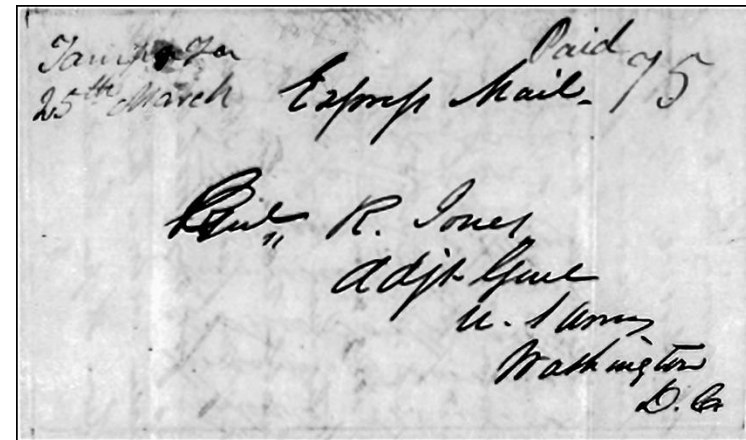 Tampa Fla
25th March
Paid 75
Express Mail.
Genl R. Jones
Adjt Genl
U. S Army
Washington
D. C.